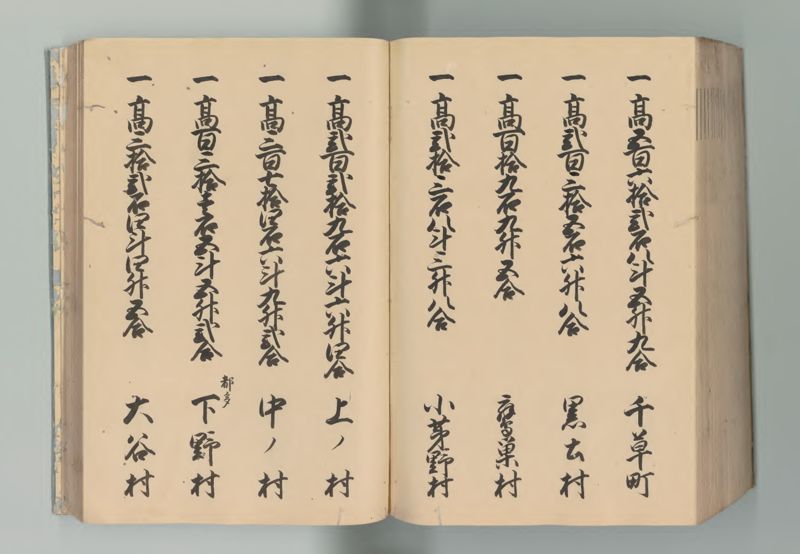 一 髙五百六拾弐石八斗五升九合 千草町
一 髙弐百三拾五石六升八合 黒土村
一 髙百拾九石九升五合 鷹巣村
一 髙弐拾三石八斗三升八合 小茅野村
一 髙弐百弐拾九石六斗六升四合 上ノ村
一 髙三百七拾四石六斗九升弐合 中ノ村
一 髙百三拾七石五斗五升弐合 都多 下野村
一 髙三拾弐石四斗四升五合 大谷村